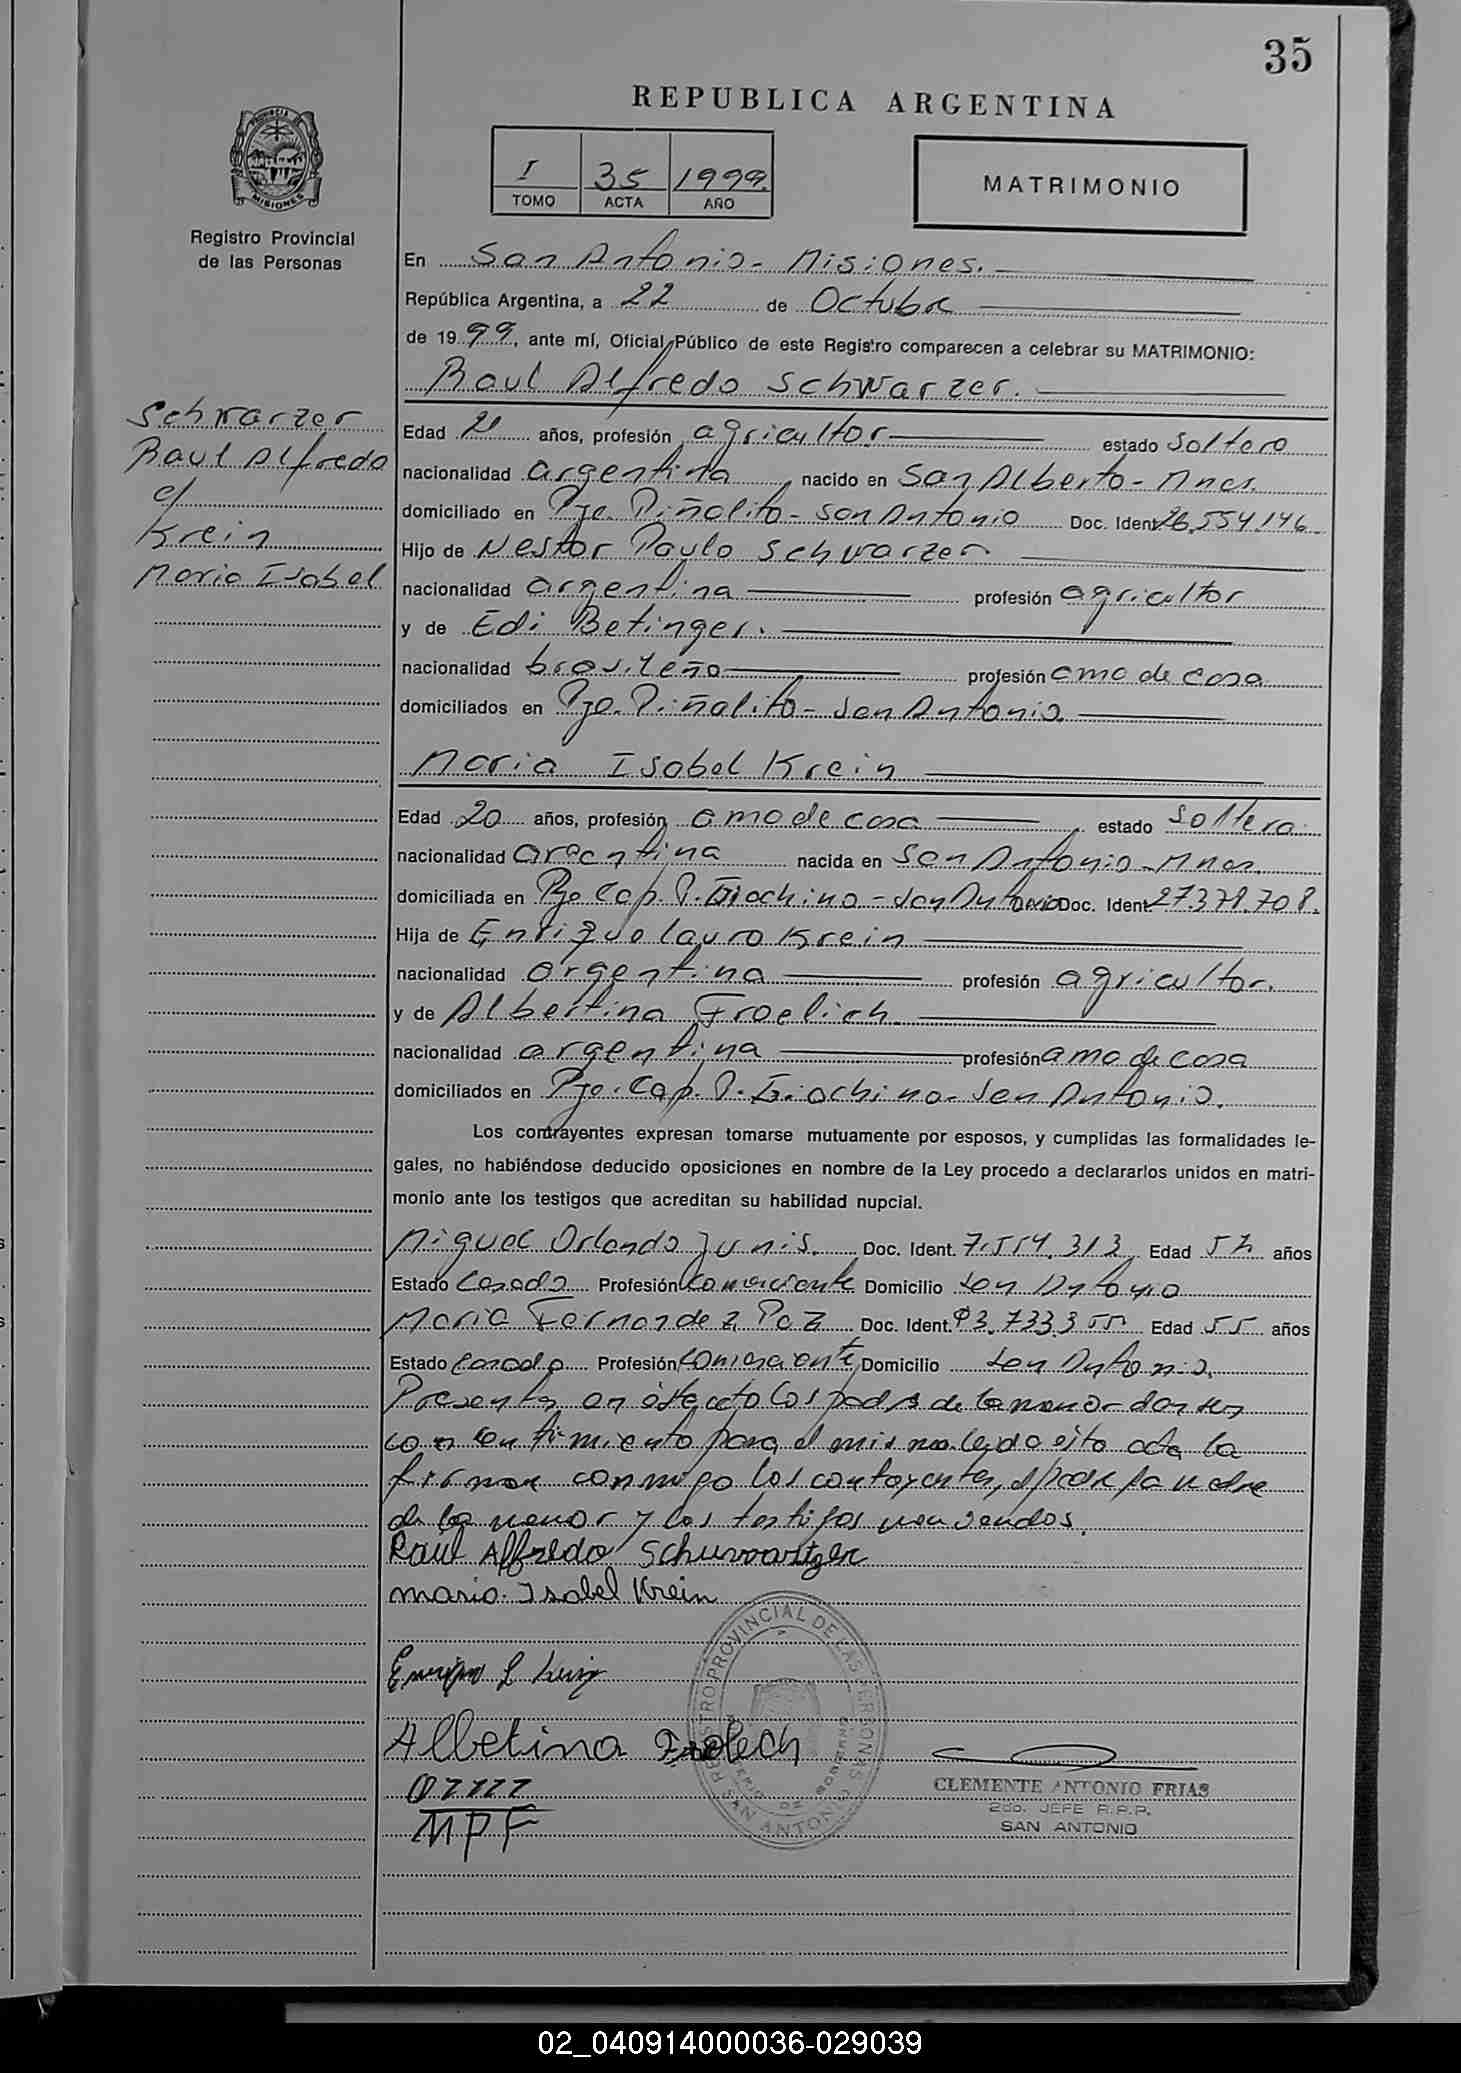 35
REPUBLICA ARGENTINA
I 35 1999.
TOMO ACTA AÑO
MATRIMONIO
PROVINCIA DE MISIONES
Registro Provincial
de las Personas
En San Antonio - Misiones.
República Argentina, a 22 de Octubre
de 1999, ante mí, Oficial Público de este Registro comparecen a celebrar su MATRIMONIO:
Raul Alfredo Schwarzer.
Schwarzer
Raul Alfredo
c/
Krein
Maria Isabel
Edad 21 años, profesión agricultor estado soltero
nacionalidad argentina nacido en San Alberto - Mnes.
domiciliado en Pje. Piñalito - San Antonio Doc. Ident 26.554.146
Hijo de Nestor Paulo Schwarzer
nacionalidad argentina profesión agricultor
y de Edi Betinger.
nacionalidad brasileña profesión ama de casa
domiciliados en Pje. Piñalito - San Antonio
Maria Isabel Krein
Edad 20 años, profesión ama de casa estado soltera
nacionalidad argentina nacida en San Antonio - Mnes.
domiciliada en Pje Cap. P. Giachino - San Antonio Doc. Ident 27.378.708.
Hija de Enrique Lauro Krein
nacionalidad argentina profesión agricultor.
y de Albertina Froelich
nacionalidad argentina profesión ama de casa
domiciliados en Pje. Cap. P. Giachino - San Antonio.
Los contrayentes expresan tomarse mutuamente por esposos, y cumplidas las formalidades le-
gales, no habiéndose deducido oposiciones en nombre de la Ley procedo a declararlos unidos en matri-
monio ante los testigos que acreditan su habilidad nupcial.
Miguel Orlando Junis. Doc. Ident. 7.554.313 Edad años
Estado Casado Profesión Comerciante Domicilio San Antonio
Maria Fernandez Paz Doc. Ident. 93.733.355 Edad 55 años
Estado Casada Profesión Comerciante Domicilio San Antonio.
Presentes en este acto los padres de la menor dan su
consentimiento para el mismo. leida esta acta la
firman conmigo los contrayentes, el padre la madre
de la menor y los testigos
Raul Alfredo Schwartzer
Maria Isabel Krein
Albetina
MPF
REGISTRO PROVINCIAL DE LAS PERSONAS
SAN ANTONIO
CLEMENTE ANTONIO FRIAS
2do. JEFE R.P.P.
SAN ANTONIO
02_040914000036-029039